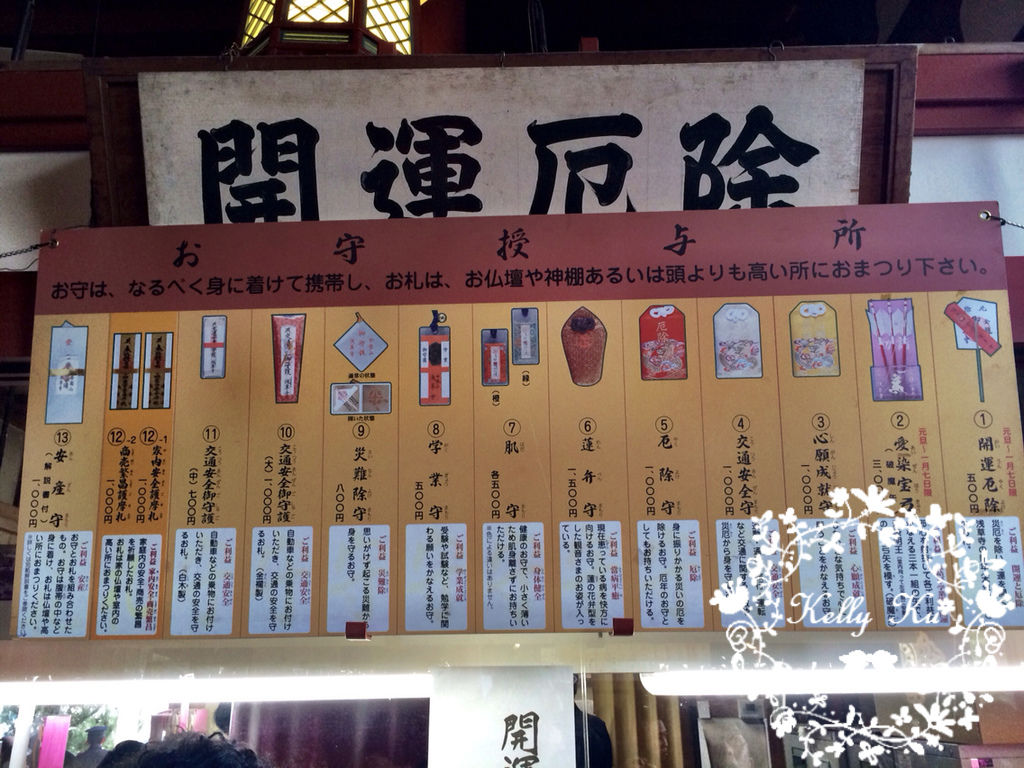 開運厄除
お守授与所
お守は、なるべく身に着けて携帯し、お札は、お仏壇や神棚あるいは頭よりも高い所におまつり下さい。
元旦~一月七日限
① 開運厄除
五〇〇円
元旦~一月七日限
② 愛染宝弓
③ 心願成就
④ 交通安全守
一、〇〇〇円
⑤ 厄除守
一、〇〇〇円
ご利益 厄除
身に振りかかる災いの厄を
除けるお守。厄年のお守と
してもお持ちいただける。
⑥ 蓮弁守
一、五〇〇円
ご利益 当病平癒
現在患っている病を快方に
向けるお守。蓮の花弁型を
した観音さまのお姿が入っ
ている。
(緑)
(橙)
⑦ 肌守
各五〇〇円
ご利益 身体健全
健康のお守で、小さく薄い
ため肌身離さずにお持ちい
ただける。
⑧ 学業守
一、〇〇〇円
ご利益 学業成就
受験や試験など、勉学に関
わる願いをかなえるお守。
通常の状態
開いた状態
⑨ 災難除守
八〇〇円
ご利益 災難除
思いがけず起こる災難から
身を守るお守。
⑩ 交通安全御守護
(大) 一、〇〇〇円
ご利益 交通安全
自動車などの乗物にお付け
いただき、交通の安全を守
るお札。(金襴製)
⑪ 交通安全御守護
(中) 七〇〇円
ご利益 交通安全
自動車などの乗物にお付け
いただき、交通の安全を守
るお札。(白木製)
⑫-1 家内安全護摩札
一、〇〇〇円
⑫-2 商売繁昌護摩札
一、〇〇〇円
ご利益 家内安全・商売繁昌
家庭内の安全・商売の繁昌
を祈願したお札。
お札は家のお仏壇や室内の
高い所におまつりください。
⑬ 安産守
(解説書付)
一、〇〇〇円
ご利益 安産
お守とお札を組み合わせた
もの。お守は腹帯の中など
身に着け、お札は仏壇や高
い所におまつりください。
Kelly Ku
開運